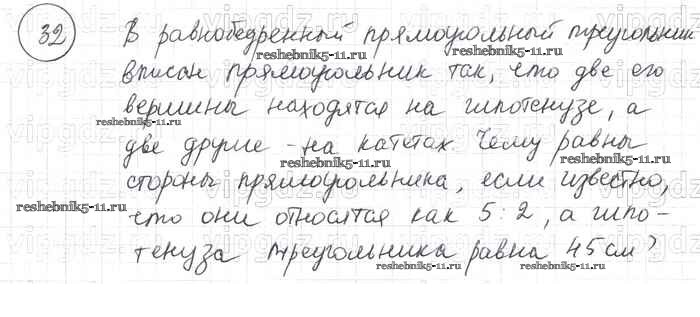 32 В равнобедренный прямоугольный треугольник
reshebnik5-11.ru reshebnik5-11.ru
вписан прямоугольник так, что две его
вершины находятся на гипотенузе, а
reshebnik5-11.ru
две другие - на катетах. Чему равны
reshebnik5-11.ru reshebnik5-11.ru
стороны прямоугольника, если известно,
reshebnik5-11.ru
что они относятся как 5:2, а гипо-
тенуза треугольника равна 45 см?
reshebnik5-11.ru reshebnik5-11.ru